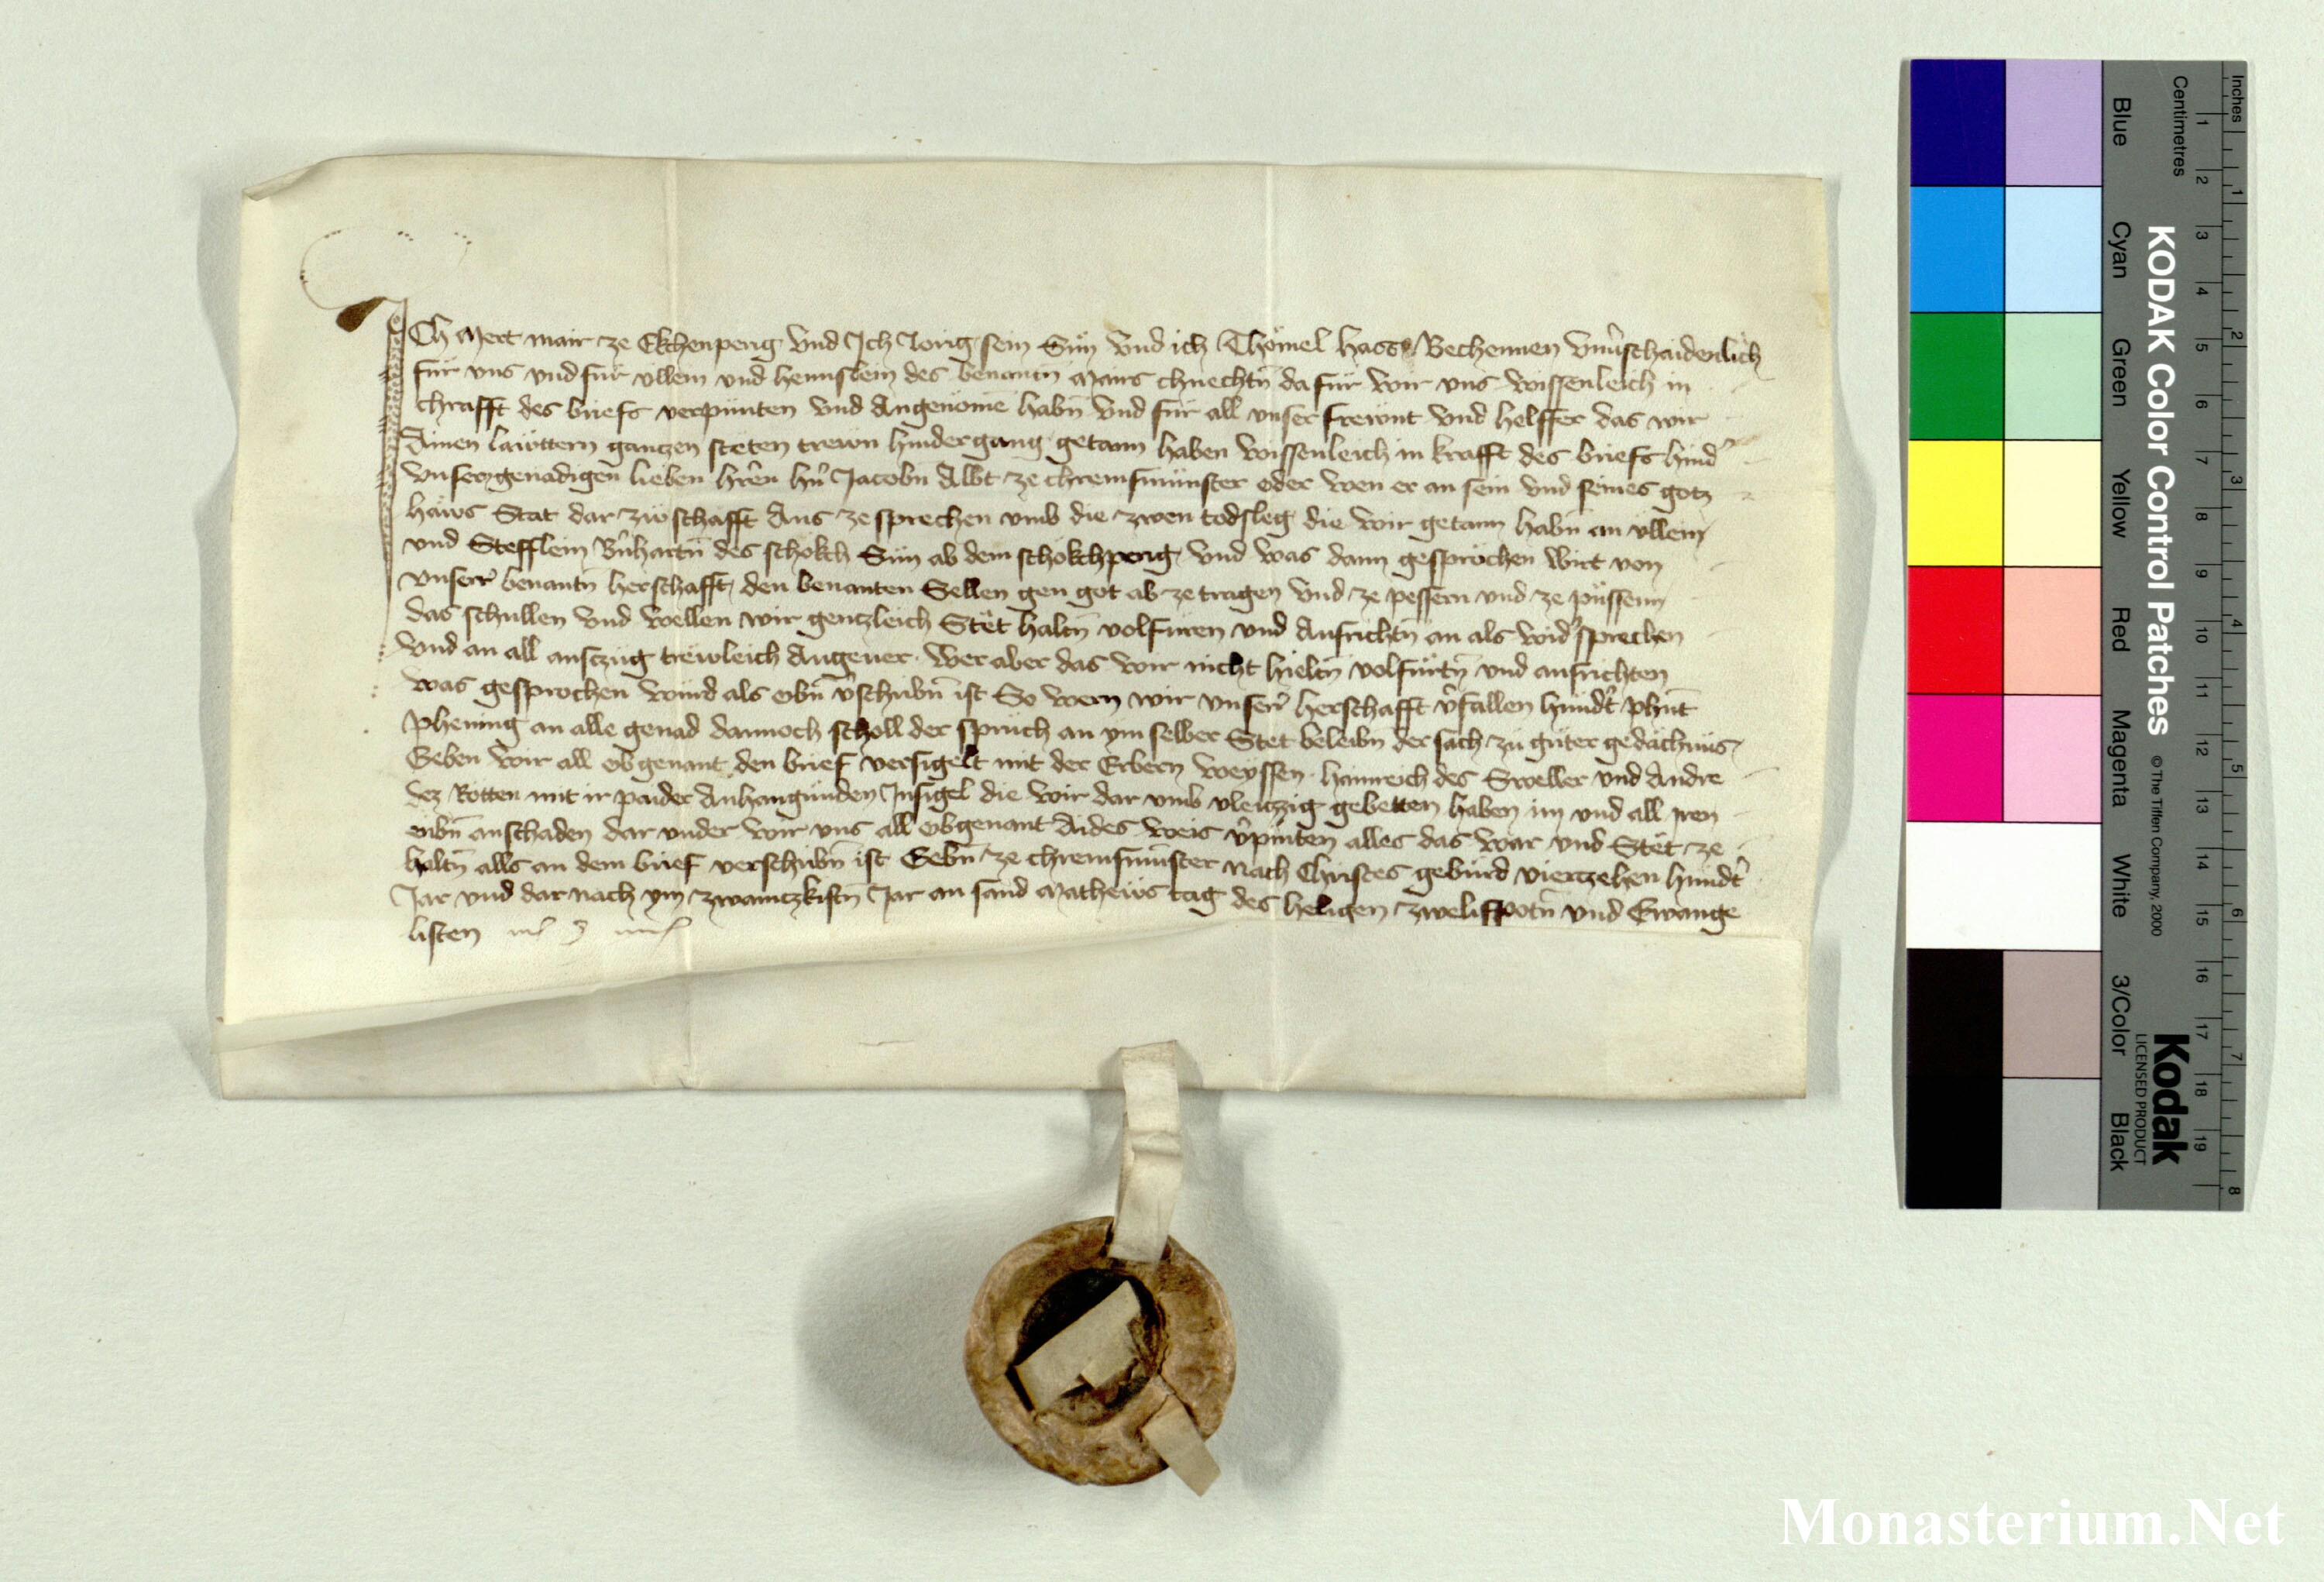 ICh Mert mair ze Ekchenperig vnd Ich Jorig sein Sün vnd ich Thömel hass Bechennen vnuschaidenlich
für vns vnd für vllein vnd hennslein des benantn Mairs chnechtn da für wir vns wissenleich in
chrafft des briefs verpünten vnd Angenome habn vnd für all vnser frewnt vnd helffer das wir
Ainen lawttern gantzen stëten trewn hindergang getann haben wissenleich in krafft des briefs hind
vnserm genädigen lieben hren hn Jacobn Abbt ze chremsmünster oder wen er an sein vnd seines gotz
haws Stat dar zw schafft Aus ze sprechen vmb die zwen todsleg die wir getann habn an vllein
vnd Stefflein Bnhartn des schökch Sün ab dem schökchperig vnd was dann gesprochen wirt von
vnserr benantn herschafft den benanten Sellen gen got ab ze tragen vnd ze pessern vnd ze püssenn
das schullen vnd wellen wir gentzleich Stët haltn volfüren vnd Ausrichtn an als widsprechen
vnd an all ausczüg trewleich Angeuer. Wer aber das wir nicht hieltn volfürtn vnd ausrichten
was gesprochen würd als obn vschribn ist So wern wir vnserr herschafft vfallen hundt phnt
phening an alle genad dannoch scholl der spruch an ym selber Stet beleibn der sach zu güter gedächnüs
Geben wir all obgenant den brief versigelt mit der Erbern weyssen hainreich des Sweller vnd Andre
dez Rötten mit ir paider Anhangunden Insigel die wir dar vmb vleitzig gebetten haben im vnd all iren
eribn anschaden dar vnder wir vns all obgenant Aides weis vpinten alles das war vnd Stët ze
haltn alls an dem brief verschribn ist Gebn ze chremsmünster Nach Christes gebürd viertzehen hundt
Jar vnd dar nach ym zwaintzkistn Jar an sand Matheüs tag des heligen zweliffpotn vnd Ewange
listen
Inches
Centimetres
1 2 3 4 5 6 7 8 9 10 11 12 13 14 15 16 17 18 19
1 2 3 4 5 6 7 8
KODAK Color Control Patches © The Tiffen Company, 2000
Kodak
LICENSED PRODUCT
Blue Cyan Green Yellow Red Magenta White 3/Color Black
Monasterium.Net